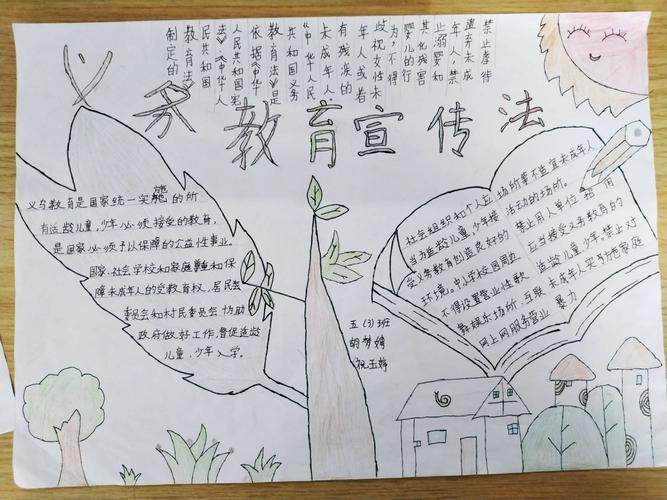 义务教育宣传法
禁止虐待
遗弃未成
年人,禁
止溺婴和
其他残害
婴儿的行
为,不得
歧视女性未
年人或者
有残疾的
未成年人
《中华人民
共和国义务
教育法》是
依据《中华
人民共和国宪
法》《中华人
民共和国
教育法》
制定的
义务教育是国家统一实施的所
有适龄儿童,少年必须接受的教育,
是国家必须予以保障的公益性事业。
国家,社会学校和家庭和保
障未成年人的受教育权,居民委
委员会和村民委员会协助
政府做好工作,督促适龄
儿童,少年入学。
社会组织和个人应
当为适龄儿童少年接
受义务教育创造良好的
环境。中小学校园周边
不得设置营业性歌
舞娱乐场所,互联
网上网服务营业
场所等不适宜未成年人
活动的场所。
禁止用人单位招用
应当接受义务教育的
适龄儿童少年。禁止对
未成年人实施家庭
暴力
五(3)班
胡梦婷
祝玉婷